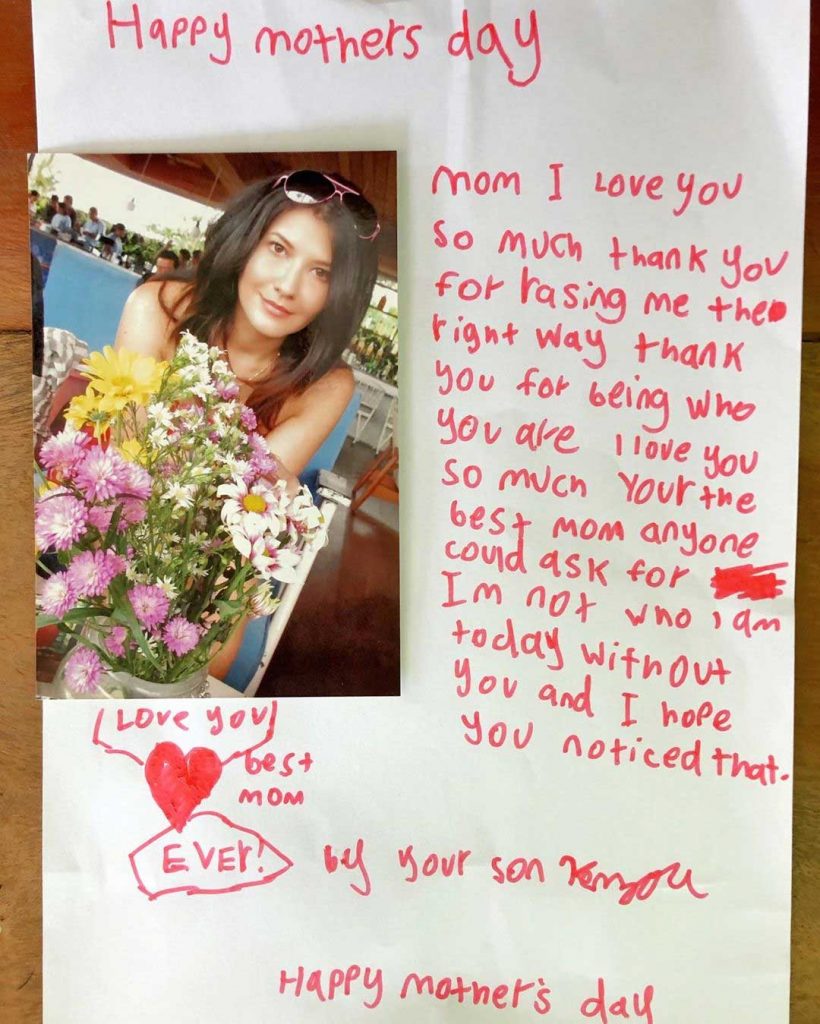 Happy mothers day
mom I Love you
so much thank you
for rasing me the
right way thank
you for being who
you are I love you
so much Your the
best mom anyone
could ask for
Im not who i am
today without
you and I hope
you noticed that.
Love you
best
mom
EVEr!
by your son
Happy mother's day